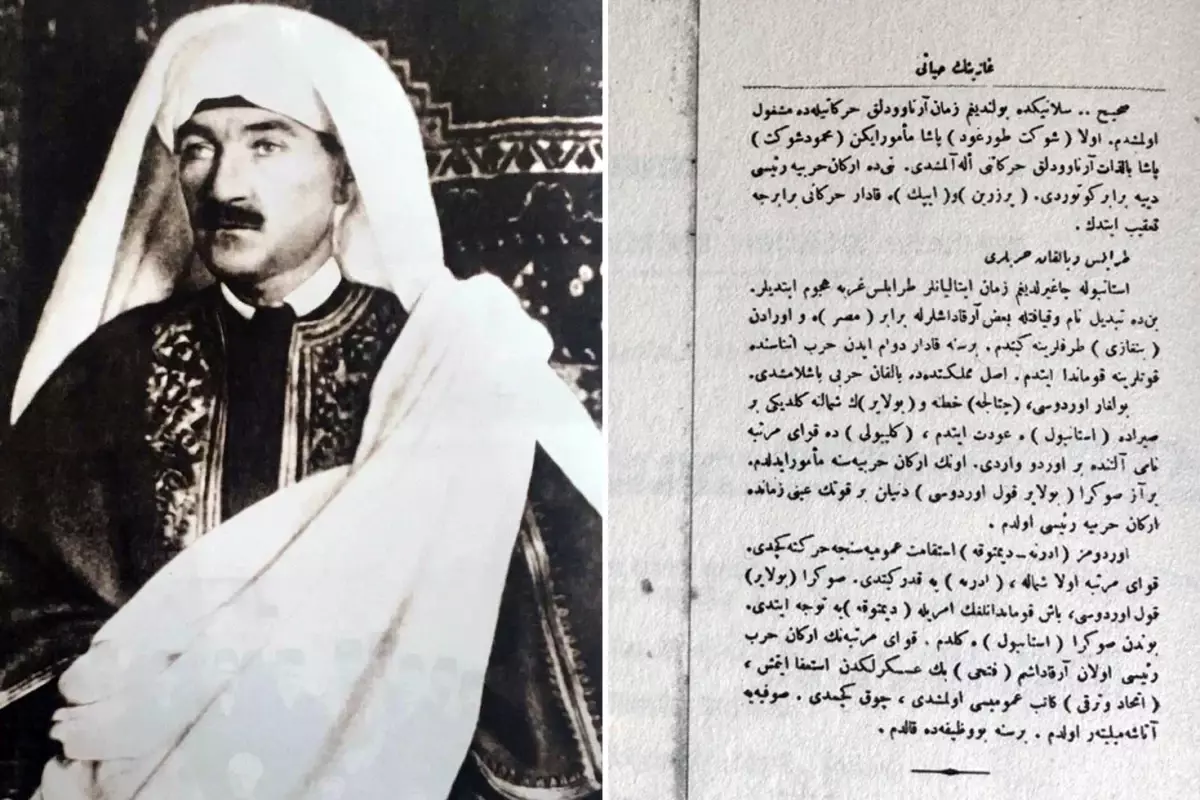 غازينك حياتى
صحيح .. سلانيكده بولنديغم زمان آرناوودلق حركاتيله ده مشغول
اولمشدم. اولا ( شوكت طورغود ) پاشا مأمورايكن ( محمودشوكت )
پاشا بالذات آرناوودلق حركاتى أله آلمشدى. نى ده اركان حربيه رئيسى
دييه برابر كوتوردى. ( پرزرين )و( ايپك )ه قادار حركاتى برابرجه
تعقيب ايتدك .
طرابلس و بالقان حربلرى
استانبوله چاغيرلديغم زمان ايتاليانلر طرابلس غربه هجوم ايتديلر.
بن ده تبديل نام وقيافتله بعض آرقاداشلرله برابر ( مصر )ه و اورادن
( بنغازى ) طرفلرينه كيتدم . برسنه قادار دوام ايدن حرب اثناسنده
قوتلرينه قوماندا ايتدم . اصل مملكتده ده بالقان حربى باشلامشدى.
بولغار اوردوسى، (چتالجه) خطنه و (بولاير)ك شمالنه كلديكى بر
صيراده ( استانبول )ه عودت ايتدم ، ( كليبولى ) ده قواى مرتبه
نامى آلتنده بر اوردو واردى. اونك اركان حربيه سنه مأمورايدلدم.
برآز صوكرا ( بولاير قول اوردوسى ) دنيلن بر قوتك عينى زمانده
اركان حربيه رئيسى اولدم .
اوردومز (ادرنه ـ ديمتوقه ) استقامت عموميه سنجه حركته كچدى.
قواى مرتبه اولا شماله ، ( ادرنه ) يه قدركيتدى. صوكرا (بولاير)
قول اوردوسى، باش قوماندانلغك امريله ( ديمتوقه )يه توجه ايتدى.
بوندن صوكرا ( استانبول )ه كلدم . قواى مرتبه نك اركان حرب
رئيسى اولان آرقاداشم ( فتحى ) بك عسكرلكدن استعفا ايتمش ،
( اتحاد و ترقى ) كاتب عموميسى اولمشدى ، چوق كچمدى . صوفيه يه
آتاشه ميليتر اولدم . برسنه بووظيفه ده قالدم .